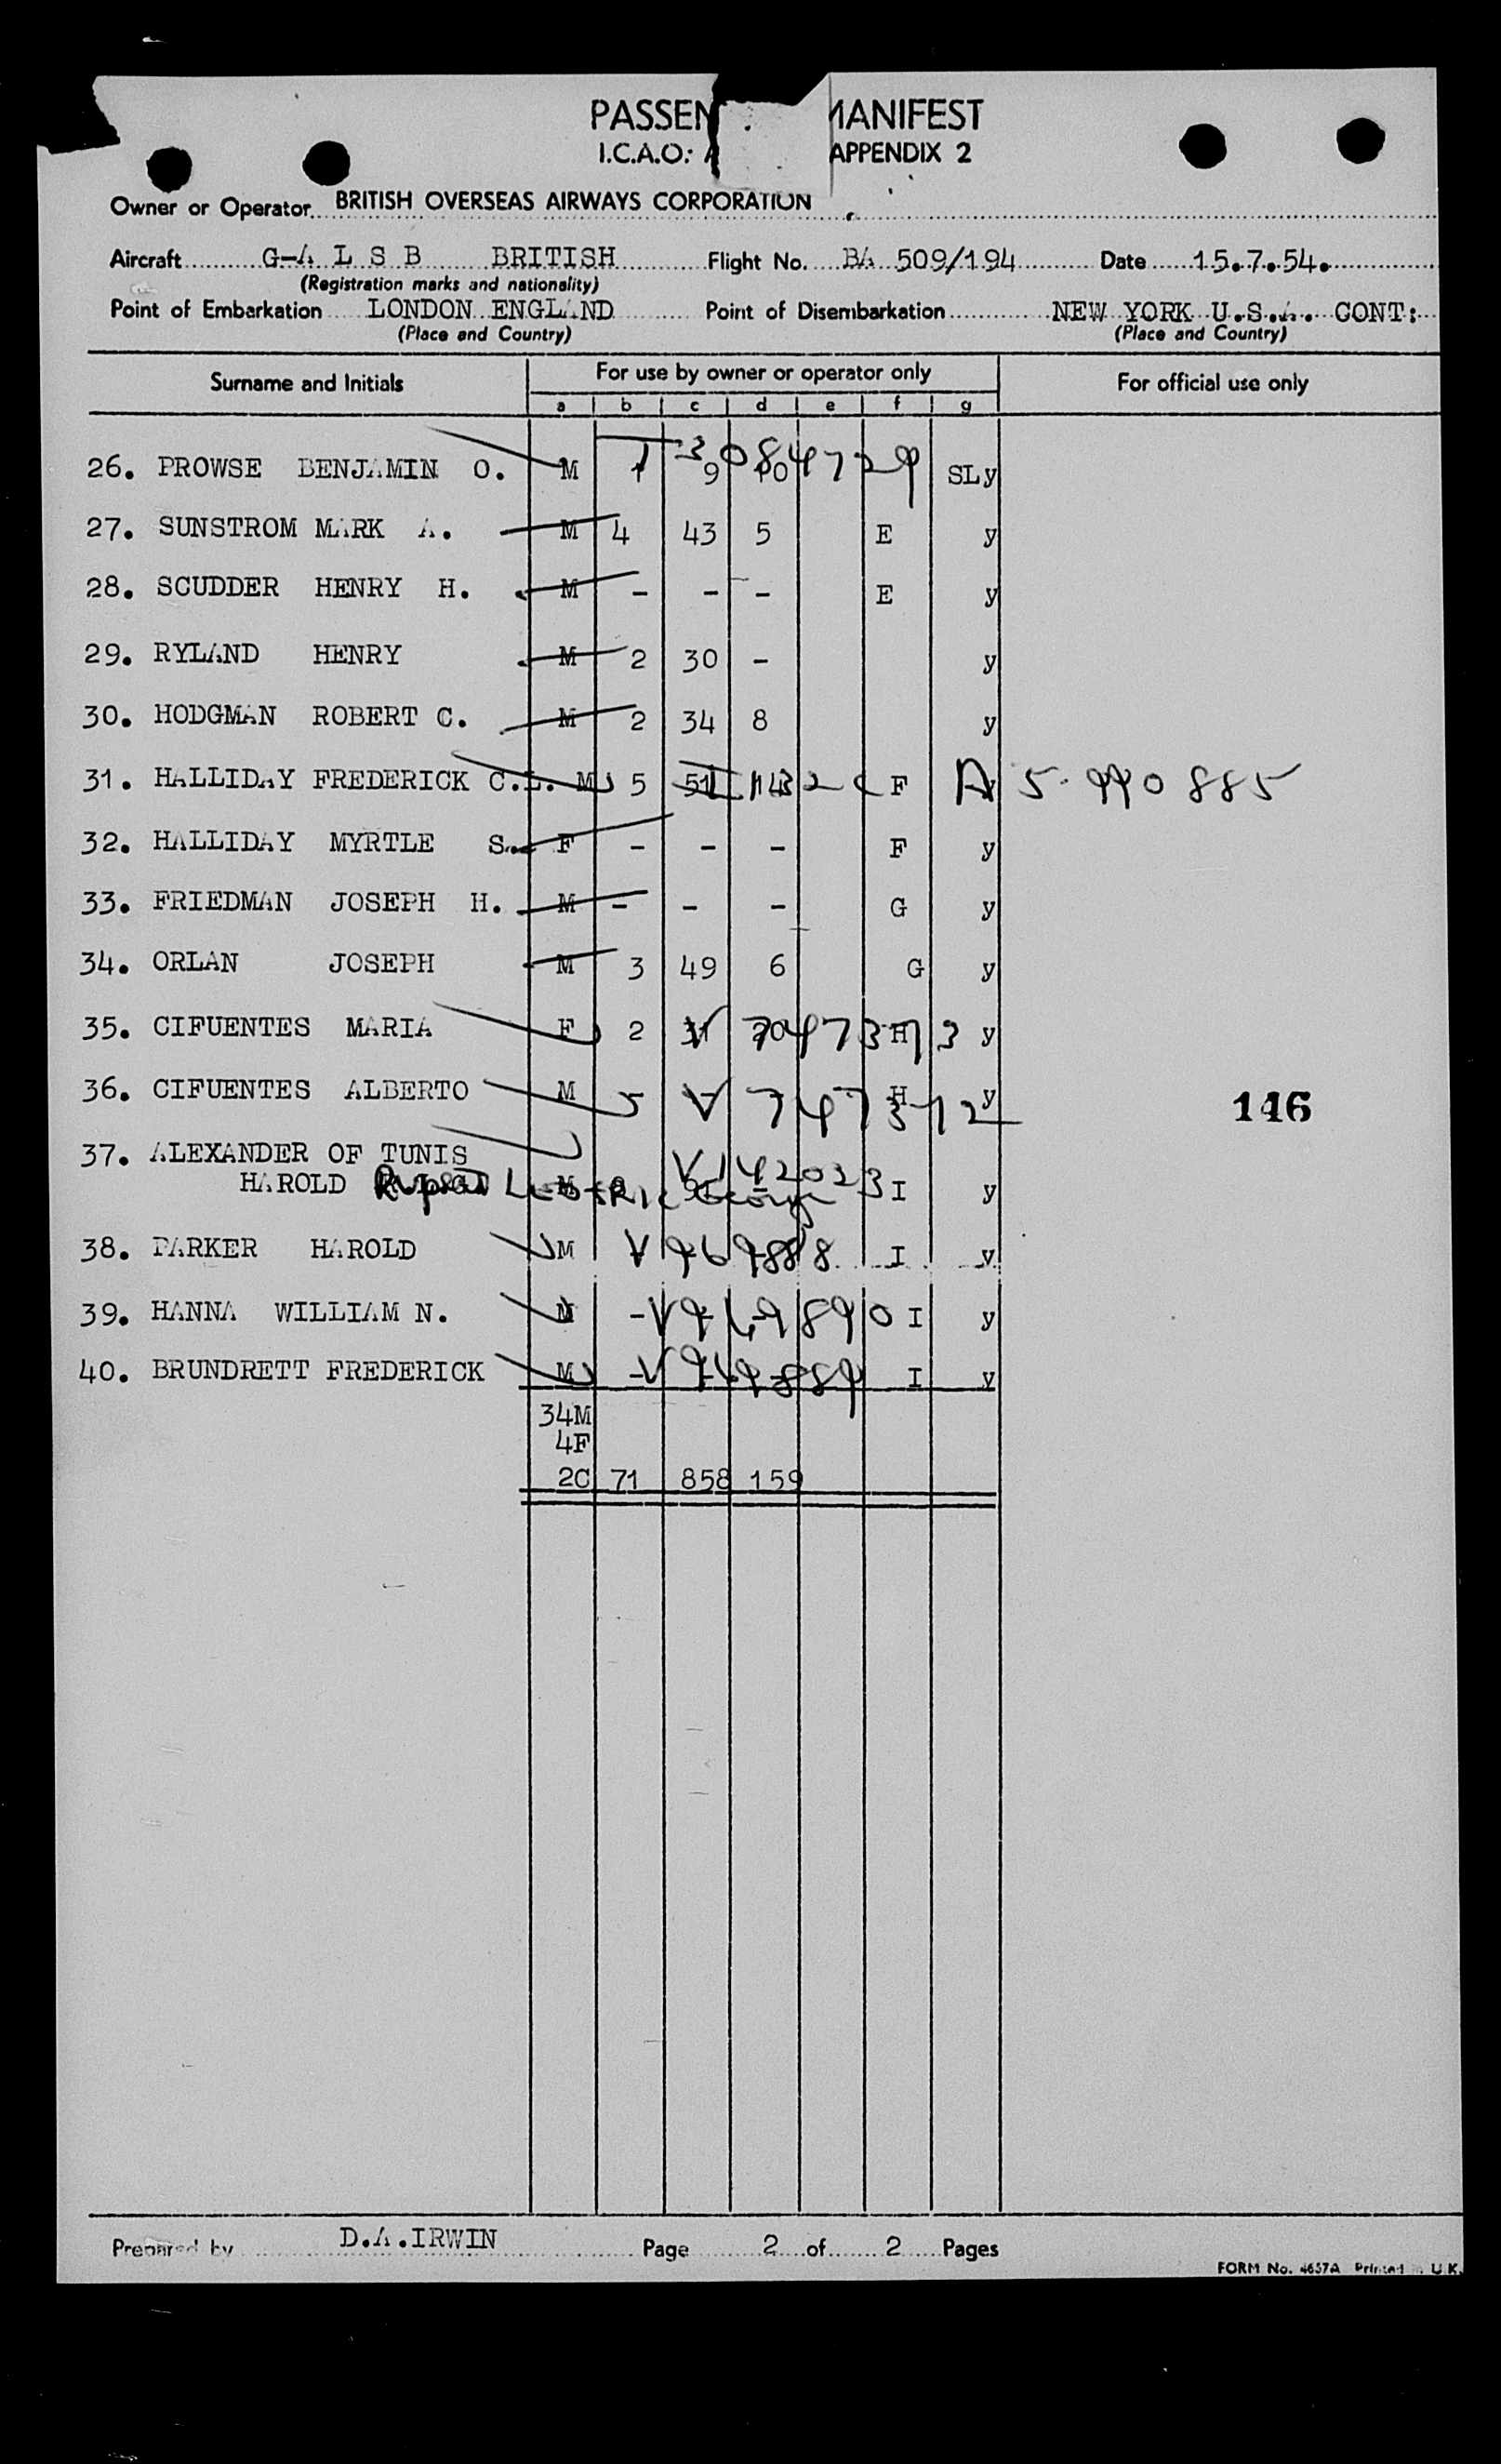 PASSEN MANIFEST
I.C.A.O: A APPENDIX 2
Owner or Operator BRITISH OVERSEAS AIRWAYS CORPORATION
Aircraft G-A L S B BRITISH Flight No. BA 509/194 Date 15.7.54.
(Registration marks and nationality)
Point of Embarkation LONDON ENGLAND Point of Disembarkation NEW YORK U.S.A. CONT:
(Place and Country) (Place and Country)
Surname and Initials For use by owner or operator only For official use only
a b c d e f g
26. PROWSE BENJAMIN O. M 1 9 10 SL y
27. SUNSTROM MARK A. M 4 43 5 E y
28. SCUDDER HENRY H. M - - - E y
29. RYLAND HENRY M 2 30 - y
30. HODGMAN ROBERT C. M 2 34 8 y
31. HALLIDAY FREDERICK C.L. M 5 51 F A 5 990 885
32. HALLIDAY MYRTLE S. F - - - F y
33. FRIEDMAN JOSEPH H. M - - - G y
34. ORLAN JOSEPH M 3 49 6 G y
35. CIFUENTES MARIA F 2 V 7047373 H y
36. CIFUENTES ALBERTO M 5 V 747372 H y
146
37. ALEXANDER OF TUNIS
V 142023
HAROLD Rupert Leofric George M I y
38. PARKER HAROLD M V 969888 I y
39. HANNA WILLIAM N. M - V 969890 I y
40. BRUNDRETT FREDERICK M - V 969889 I y
34M
4F
2C 71 858 159
Prepared by D.A.IRWIN Page 2 of 2 Pages
FORM No. 4657A Printed in U.K.